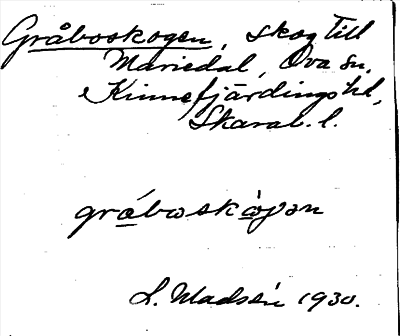 Gråboskogen, skog till
Mariedal, Ova sn,
Kinnefjärdings hd,
Skarab. l.
gráboskògən
L. Madsén 1930.